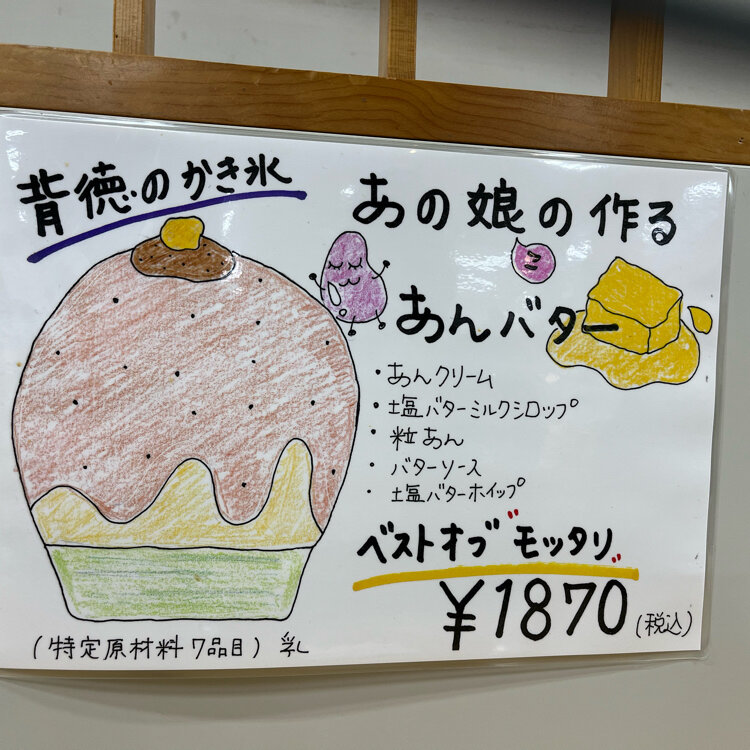 背徳のかき氷
あの娘の作る
こ
あんバター
・あんクリーム
・塩バターミルクシロップ
・粒あん
・バターソース
・塩バターホイップ
ベストオブ"モッタリ"
¥1870(税込)
(特定原材料7品目)乳